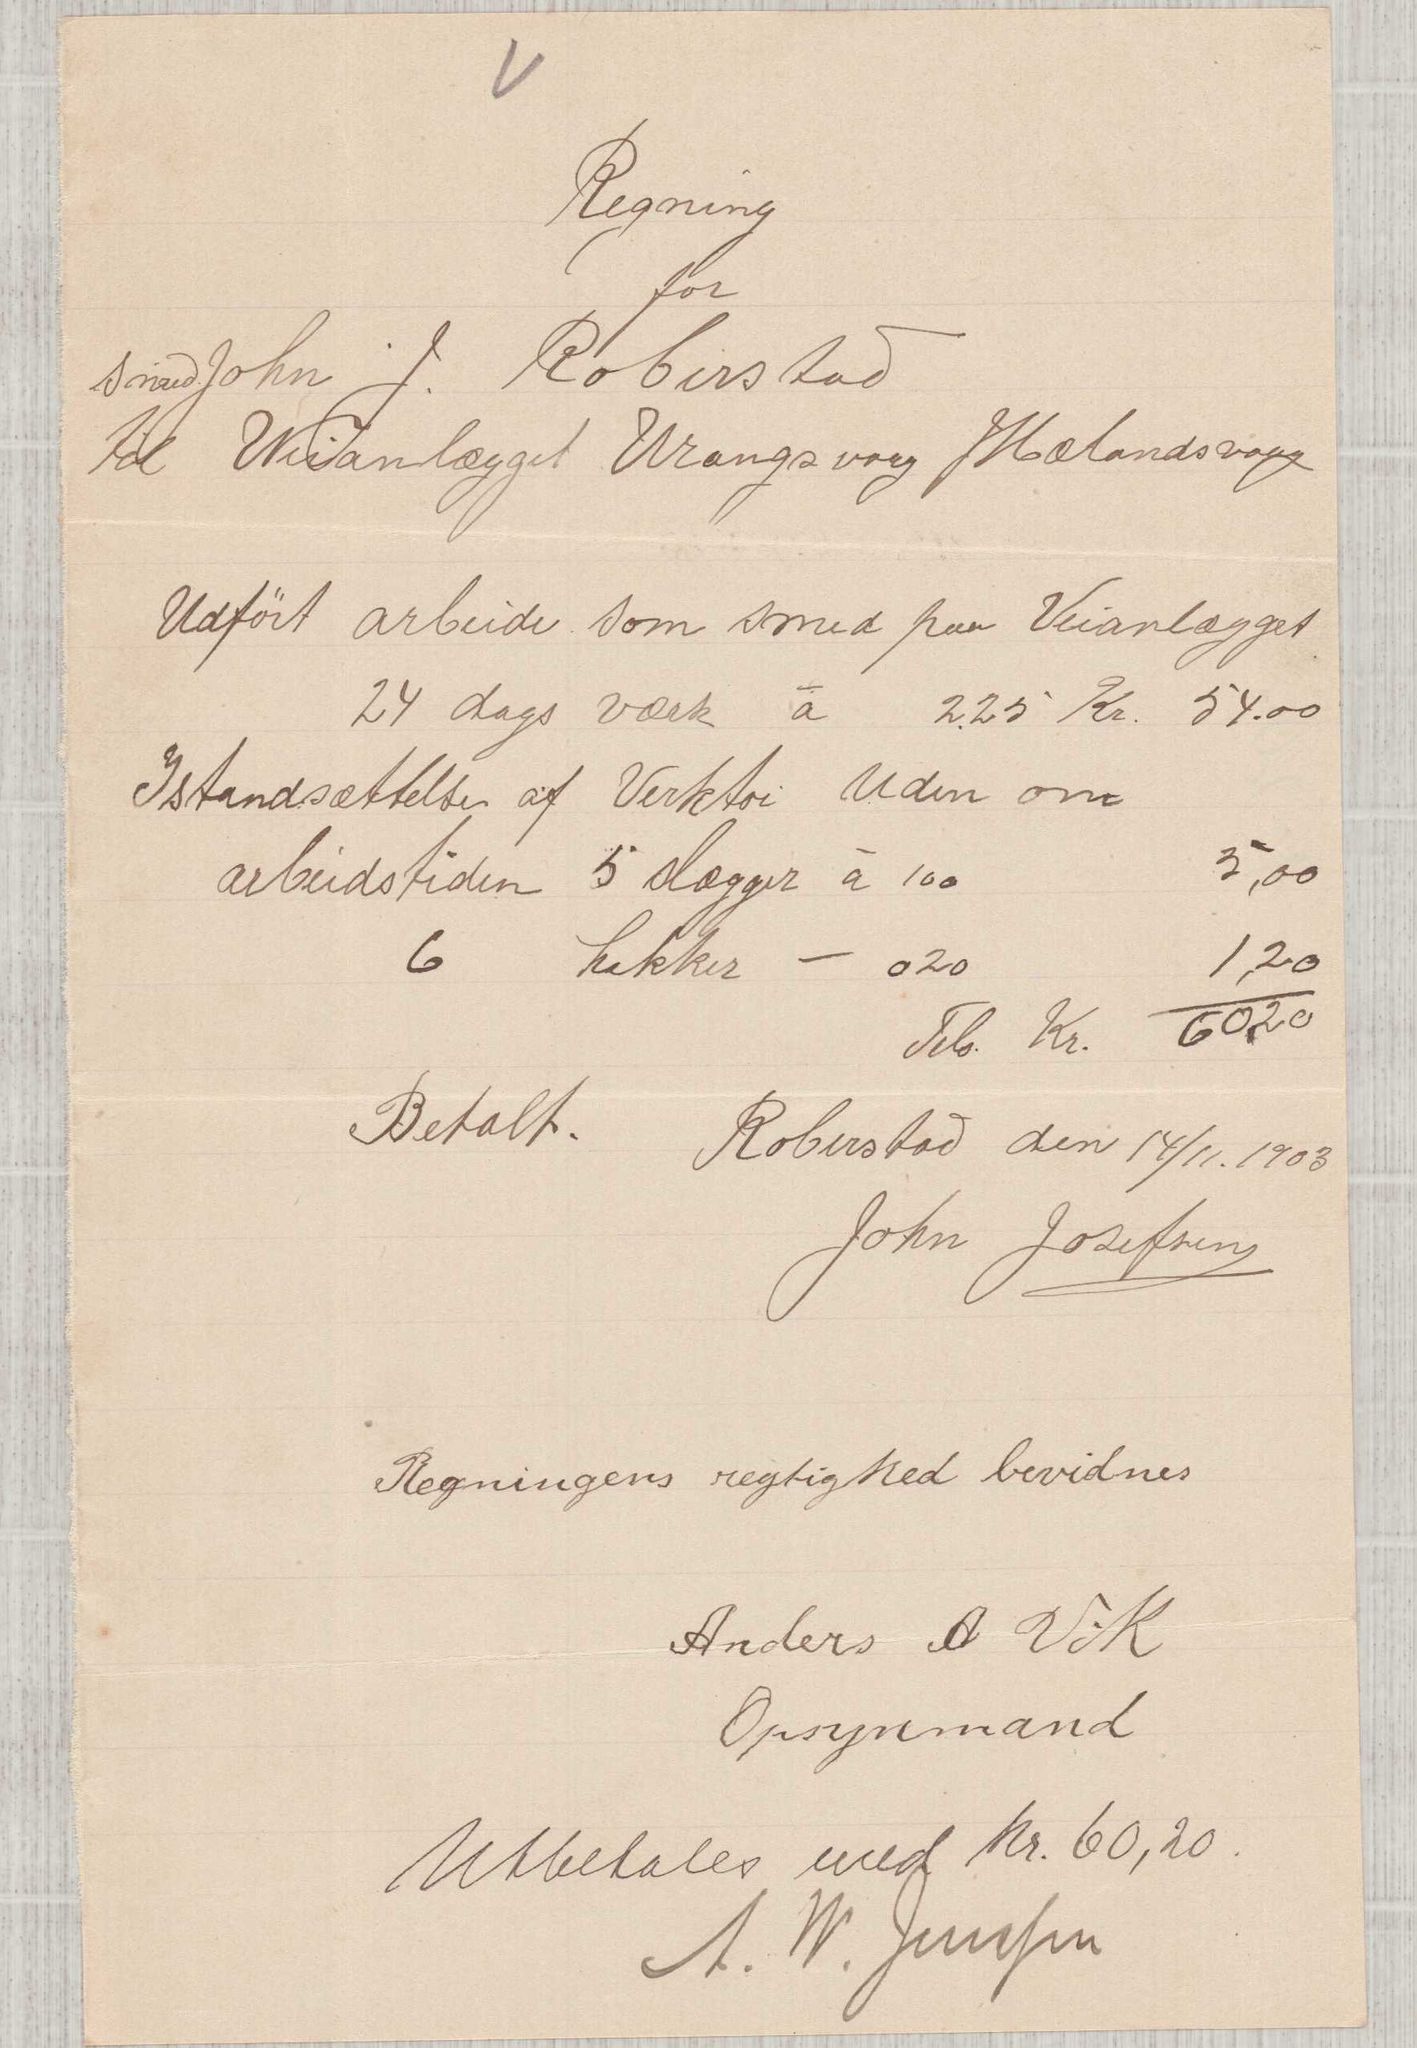 V
Regning
for
smed John J. Roberstad
til Weianlægget Urangsvaag Mælandsvaag
Udfört arbeide som smed paa Veianlægget
24 dags værk à 2.25 Kr. 54.00
Istandsættelse af Verktöi Uden om
arbeidstiden 5 slægger à 100 5,00
6 hakker — 020 1,20
Tils. Kr. 60,20
Betalt. Roberstad den 14/11. 1903
John Josefsen
Regningens regtighed bevidnes
Anders A Vik
Opsynmand
Utbetales med Kr. 60,20.
A. W. Jensen